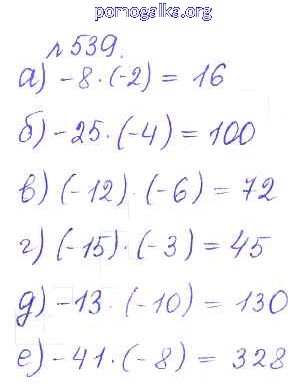 pomogalka.org
№539.
а) -8 · (-2) = 16
б) -25 · (-4) = 100
в) (-12) · (-6) = 72
г) (-15) · (-3) = 45
д) -13 · (-10) = 130
е) -41 · (-8) = 328